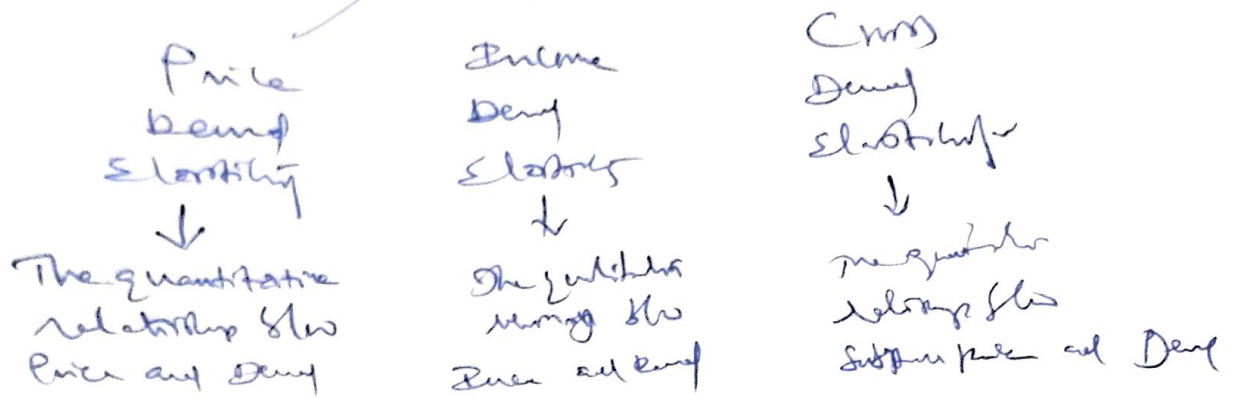 Price
Demand
Elasticity
↓
The quantitative
relationship b/w
Price and Demand
Income
Demand
Elasticity
↓
The quantitative
b/w
and Demand
Cross
Demand
Elasticity
↓
The quantitative
relationship b/w
and Demand